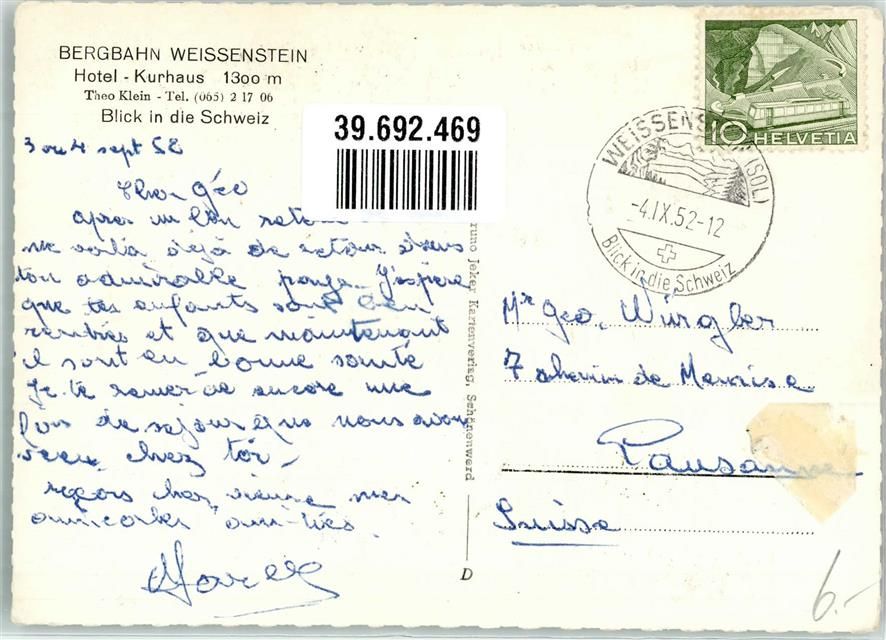 BERGBAHN WEISSENSTEIN
Hotel - Kurhaus 1300 m
Theo Klein - Tel. (065) 2 17 06
Blick in die Schweiz
39.692.469
3 ou 4 sept 52
Cher Géo
apres un bon
me voilà déjà de retour dans
ton admirable J'espère
que tes enfants sont bien
rentrés et que maintenant
il sont en bonne santé
Je te remercie encore une
fois de sejour que nous avon
chez toi -
reçois cher mes
amicales
Marcel
runo Jeker Kartenverlag, Schönenwerd
D
10 HELVETIA
WEISSENS (SOL)
-4.IX.52-12
Blick in die Schweiz
Mr Géo. Würgler
7 chemin de
Lausanne
Suisse
6.-